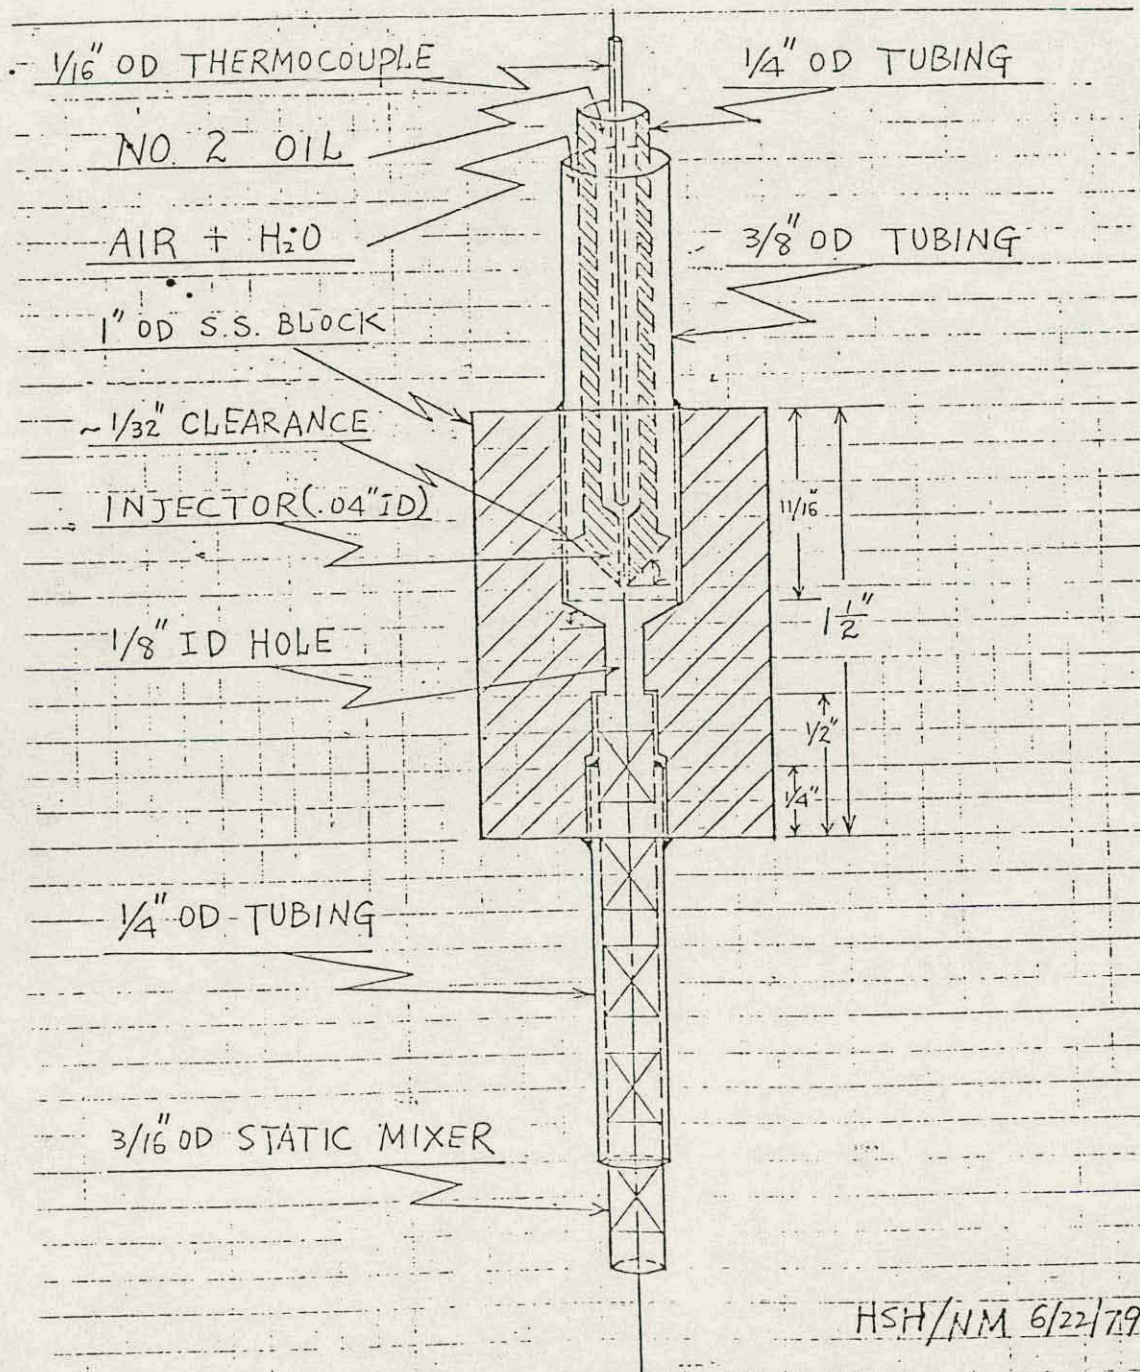 1/16" OD THERMOCOUPLE
1/4" OD TUBING
NO. 2 OIL
AIR + H2O
3/8" OD TUBING
1" OD S.S. BLOCK
~ 1/32" CLEARANCE
INJECTOR (.04" ID)
11/16"
1 1/2"
1/8" ID HOLE
1/2"
1/4"
1/4" OD TUBING
3/16" OD STATIC MIXER
HSH/NM 6/22/79